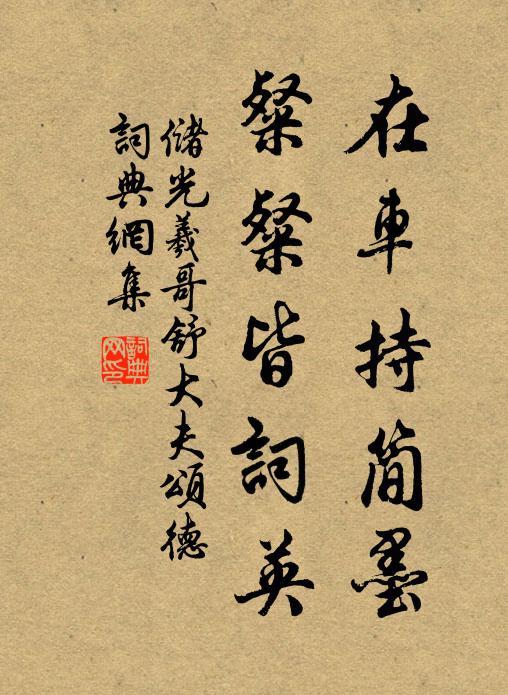 在車持簡墨
粲粲皆詞英
儲光羲哥舒大夫頌德
詞典網集
詞典網印